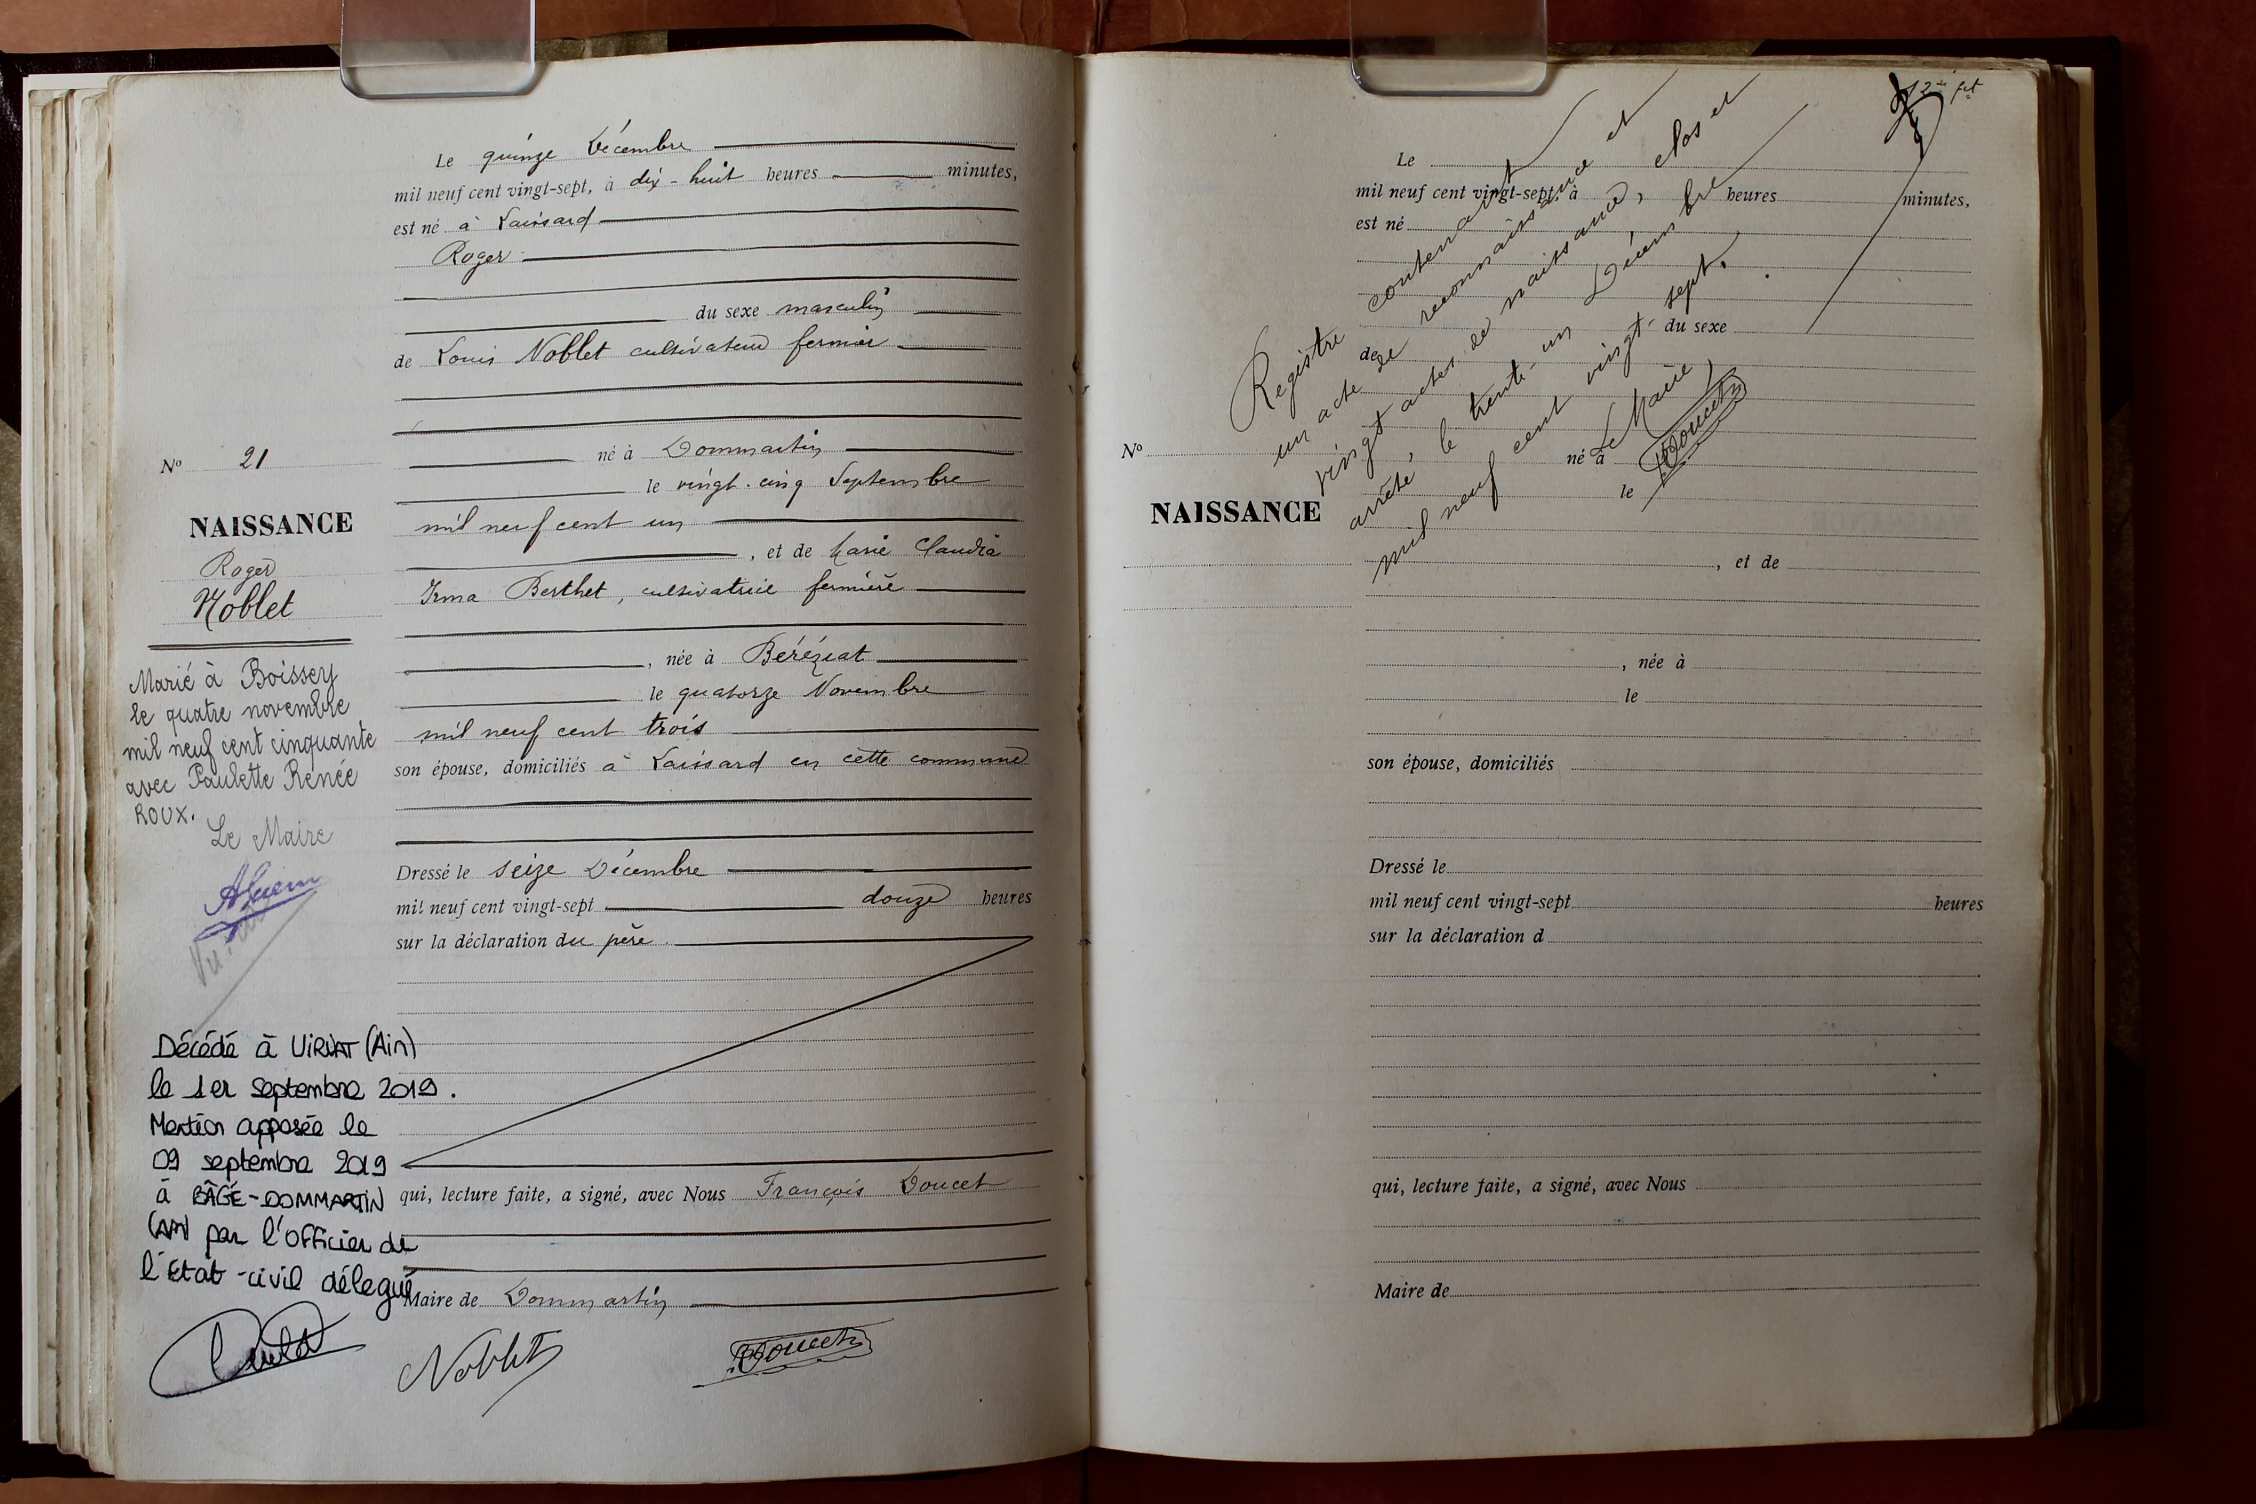 Le quinze Décembre
mil neuf cent vingt-sept, à dix-huit heures minutes,
est né à Laissard
Roger
du sexe masculin
de Louis Noblet cultivateur fermier
né à Dommartin
le vingt-cinq Septembre
mil neuf cent un
, et de Marie Claudia
Irma Berthet, cultivatrice fermière
, née à Béréziat
le quatorze Novembre
mil neuf cent trois
son épouse, domiciliés à Laissard en cette commune
Dressé le seize Décembre
mil neuf cent vingt-sept douze heures
sur la déclaration du père
qui, lecture faite, a signé, avec Nous François Doucet
Maire de Dommartin
Noblet Doucet
No 21
NAISSANCE
Roger
Noblet
Marié à Boissey
le quatre novembre
mil neuf cent cinquante
avec Paulette Renée
ROUX.
Le Maire
Décédé à VIRIAT (Ain)
le 1er septembre 2019.
Mention apposée le
09 septembre 2019
à BÂGÉ-DOMMARTIN
(AIN) par l'officier de
l'Etat-civil délégué
Le
mil neuf cent vingt-sept, à heures minutes,
est né
du sexe
de
né à
le
, et de
, née à
le
son épouse, domiciliés
Dressé le
mil neuf cent vingt-sept heures
sur la déclaration d
qui, lecture faite, a signé, avec Nous
Maire de
No
NAISSANCE
Registre contenant
un acte de reconnaissance et
vingt actes de naissance, clos et
arrêté, le trente-un Décembre
mil neuf cent vingt-sept.
Le Maire,
Doucet